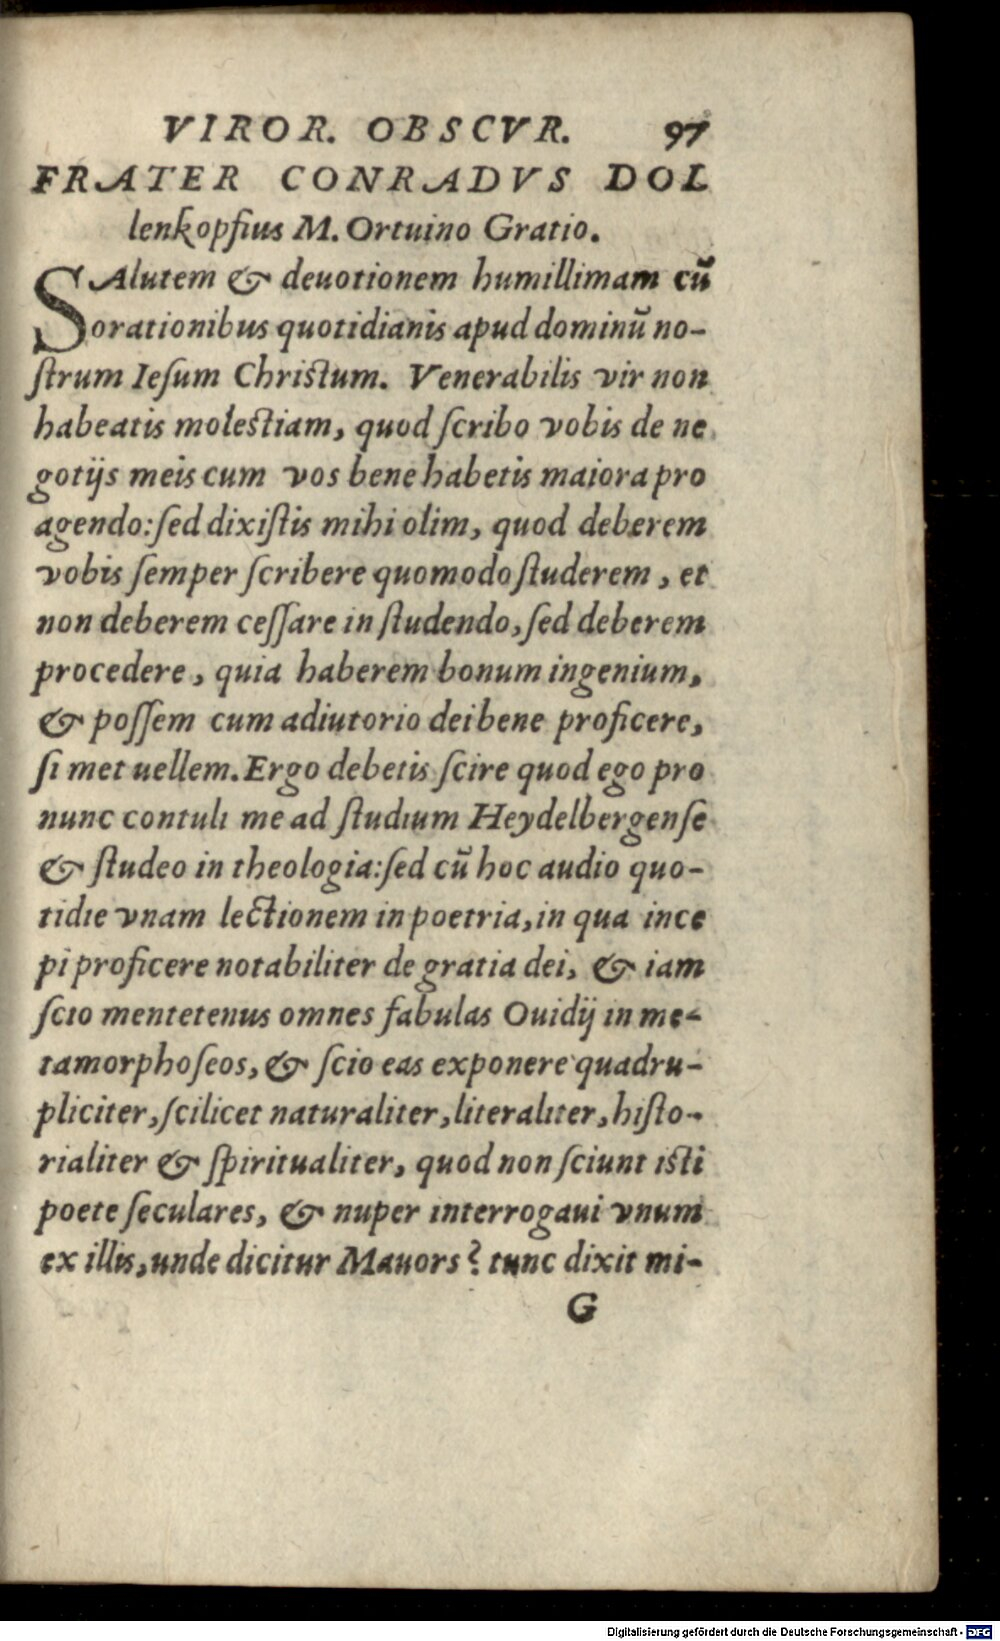 VIROR. OBSCVR. 97
FRATER CONRADVS DOL
lenkopfius M. Ortuino Gratio.
SAlutem & deuotionem humillimam cũ
orationibus quotidianis apud dominũ no-
ſtrum Ieſum Chriſtum. Venerabilis vir non
habeatis moleſtiam, quod ſcribo vobis de ne
gotijs meis cum vos bene habetis maiora pro
agendo: ſed dixiſtis mihi olim, quod deberem
vobis ſemper ſcribere quomodo ſtuderem, et
non deberem ceſſare in ſtudendo, ſed deberem
procedere, quia haberem bonum ingenium,
& poſſem cum adiutorio dei bene proficere,
ſi met uellem. Ergo debetis ſcire quod ego pro
nunc contuli me ad ſtudium Heydelbergenſe
& ſtudeo in theologia: ſed cũ hoc audio quo-
tidie vnam lectionem in poetria, in qua ince
pi proficere notabiliter de gratia dei, & iam
ſcio mentetenus omnes fabulas Ouidij in me-
tamorphoſeos, & ſcio eas exponere quadru-
pliciter, ſcilicet naturaliter, literaliter, hiſto-
rialiter & ſpiritualiter, quod non ſciunt iſti
poete ſeculares, & nuper interrogaui vnum
ex illis, unde dicitur Mauors? tunc dixit mi-
G
Digitalisierung gefördert durch die Deutsche Forschungsgemeinschaft - DFG